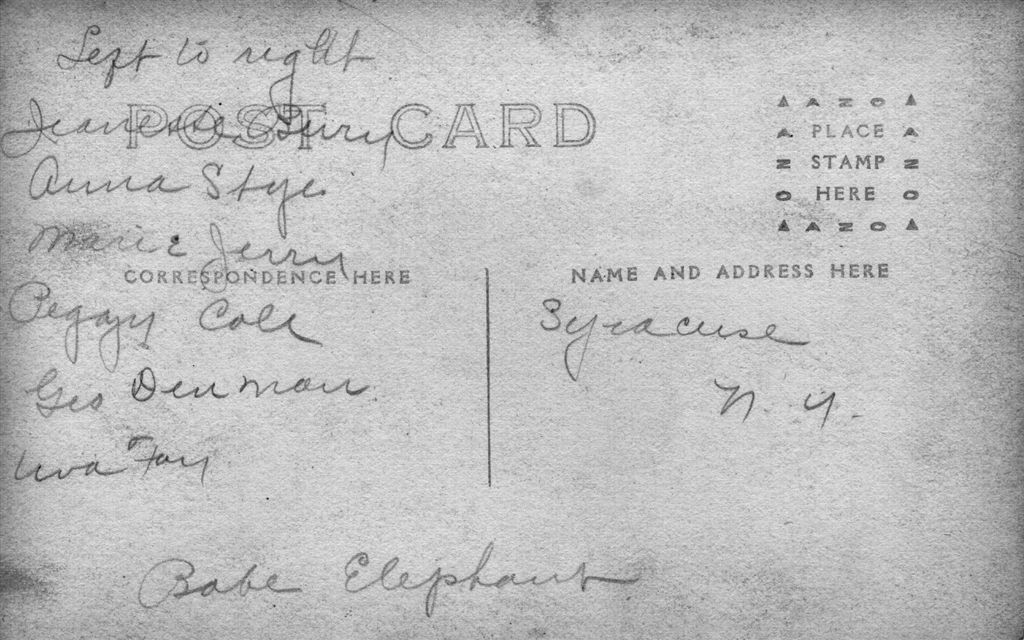 Left to right
POST CARD
Jeanette Perry
Anna Styer
Marie Jerry
CORRESPONDENCE HERE
Peggy Cole
Geo Denman
Uva Fay
Babe Elephant
AZO
PLACE
STAMP
HERE
AZO
NAME AND ADDRESS HERE
Syracuse
N. Y.